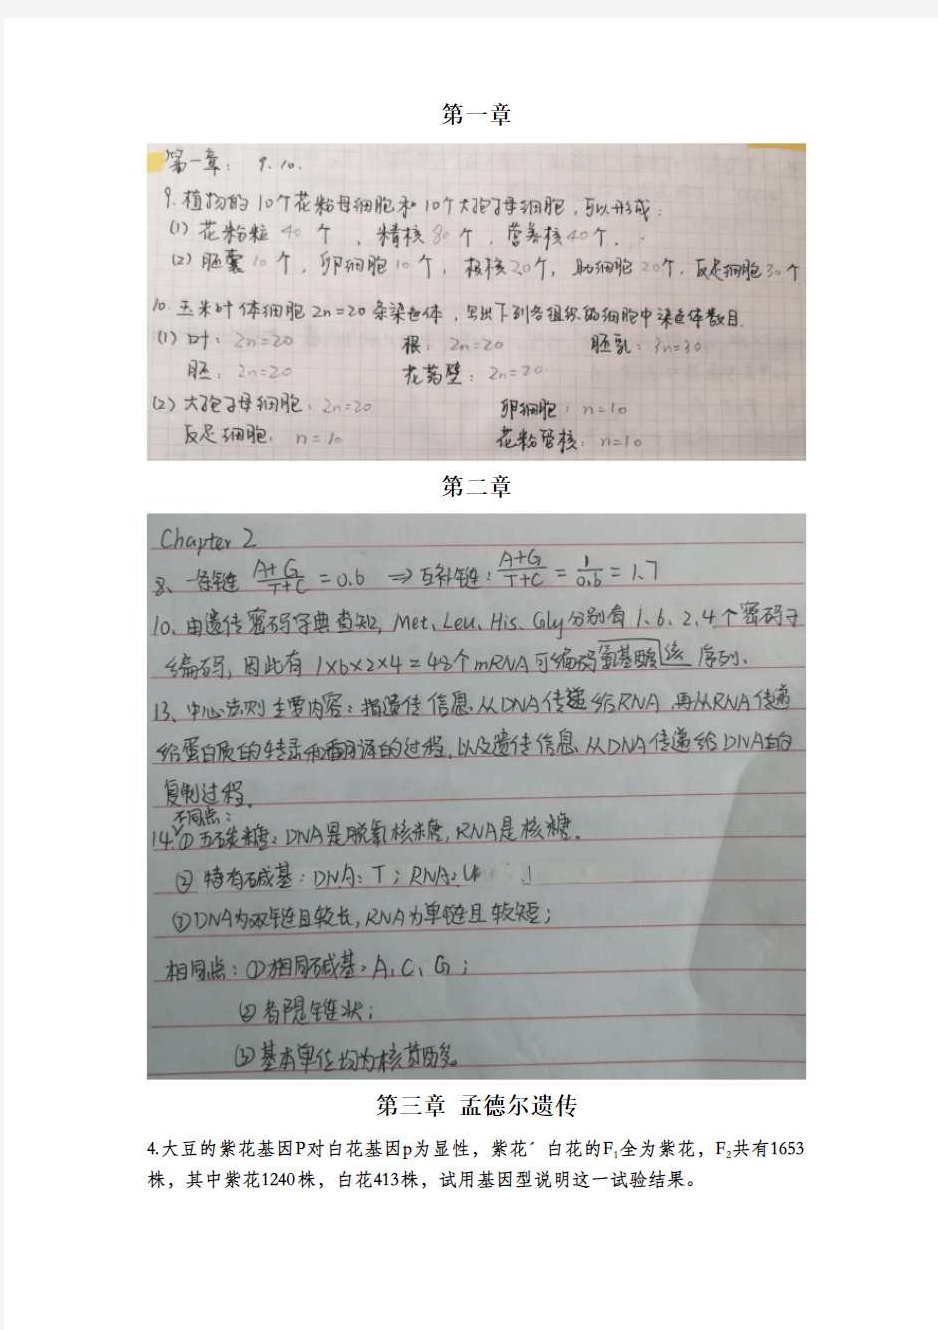 第一章
第一章： 9. 10.
9. 植物的10个花粉母细胞和10个大孢子母细胞，可以形成：
(1) 花粉粒 40 个 ，精核 80 个 ，营养核 40 个 .
(2) 胚囊 10 个，卵细胞 10 个，极核 20 个，助细胞 20 个，反足细胞 30 个
10. 玉米叶体细胞 2n=20 条染色体，写出下列各组织的细胞中染色体数目.
(1) 叶：2n=20 根：2n=20 胚乳：3n=30
胚：2n=20 花药壁：2n=20
(2) 大孢子母细胞：2n=20 卵细胞：n=10
反足细胞：n=10 花粉管核：n=10
第二章
Chapter 2
8、一条链 A+G/T+C = 0.6 ⇒ 互补链：A+G/T+C = 1/0.6 = 1.7
10、由遗传密码字典查知，Met、Leu、His、Gly分别有1、6、2、4个密码子
编码，因此有 1×6×2×4=48个mRNA可编码氨基酸该序列、
13、中心法则主要内容：指遗传信息从DNA传递给RNA，再从RNA传递
给蛋白质的转录和翻译的过程，以及遗传信息从DNA传递给DNA的
复制过程。
不同点：
14、①五碳糖：DNA是脱氧核糖，RNA是核糖。
② 特有碱基：DNA：T；RNA：U
③DNA为双链且较长，RNA为单链且较短；
相同点：①相同碱基：A、C、G；
②都是链状；
③基本单位均为核苷酸。
第三章 孟德尔遗传
4.大豆的紫花基因P对白花基因p为显性，紫花´ 白花的F₁全为紫花，F₂共有1653
株，其中紫花1240株，白花413株，试用基因型说明这一试验结果。